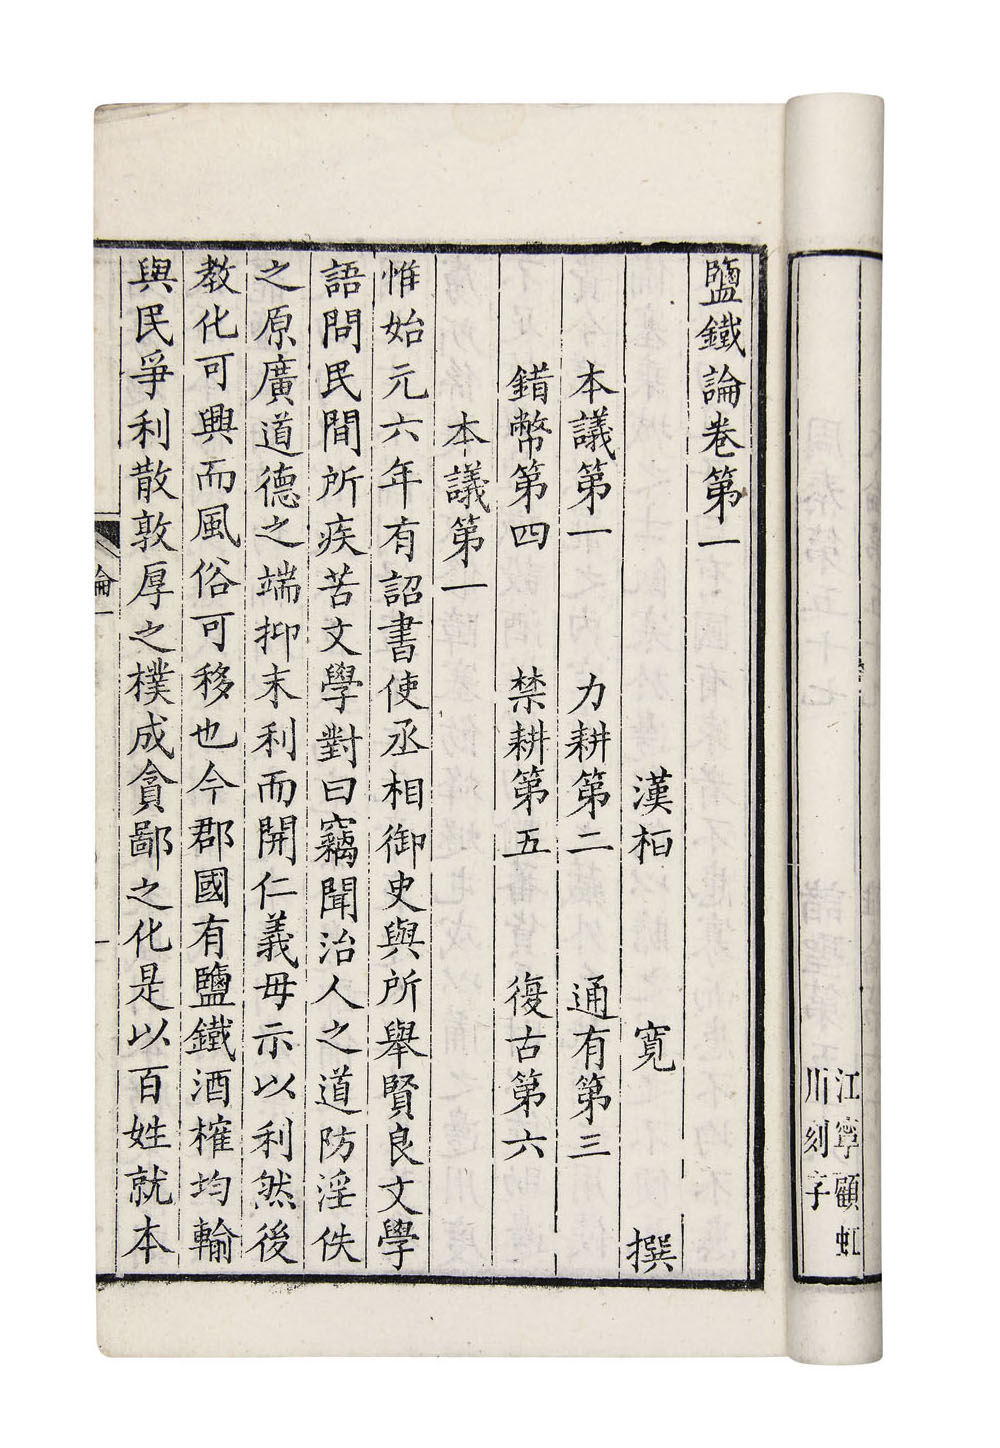 江寧顧虹
川刻字
鹽鐵論卷第一
漢桓寬撰
本議第一 力耕第二 通有第三
錯幣第四 禁耕第五 復古第六
本議第一
惟始元六年有詔書使丞相御史與所舉賢良文學
語問民間所疾苦文學對曰竊聞治人之道防淫佚
之原廣道德之端抑末利而開仁義毋示以利然後
教化可興而風俗可移也今郡國有鹽鐵酒榷均輸
與民爭利散敦厚之樸成貪鄙之化是以百姓就本
論一
一